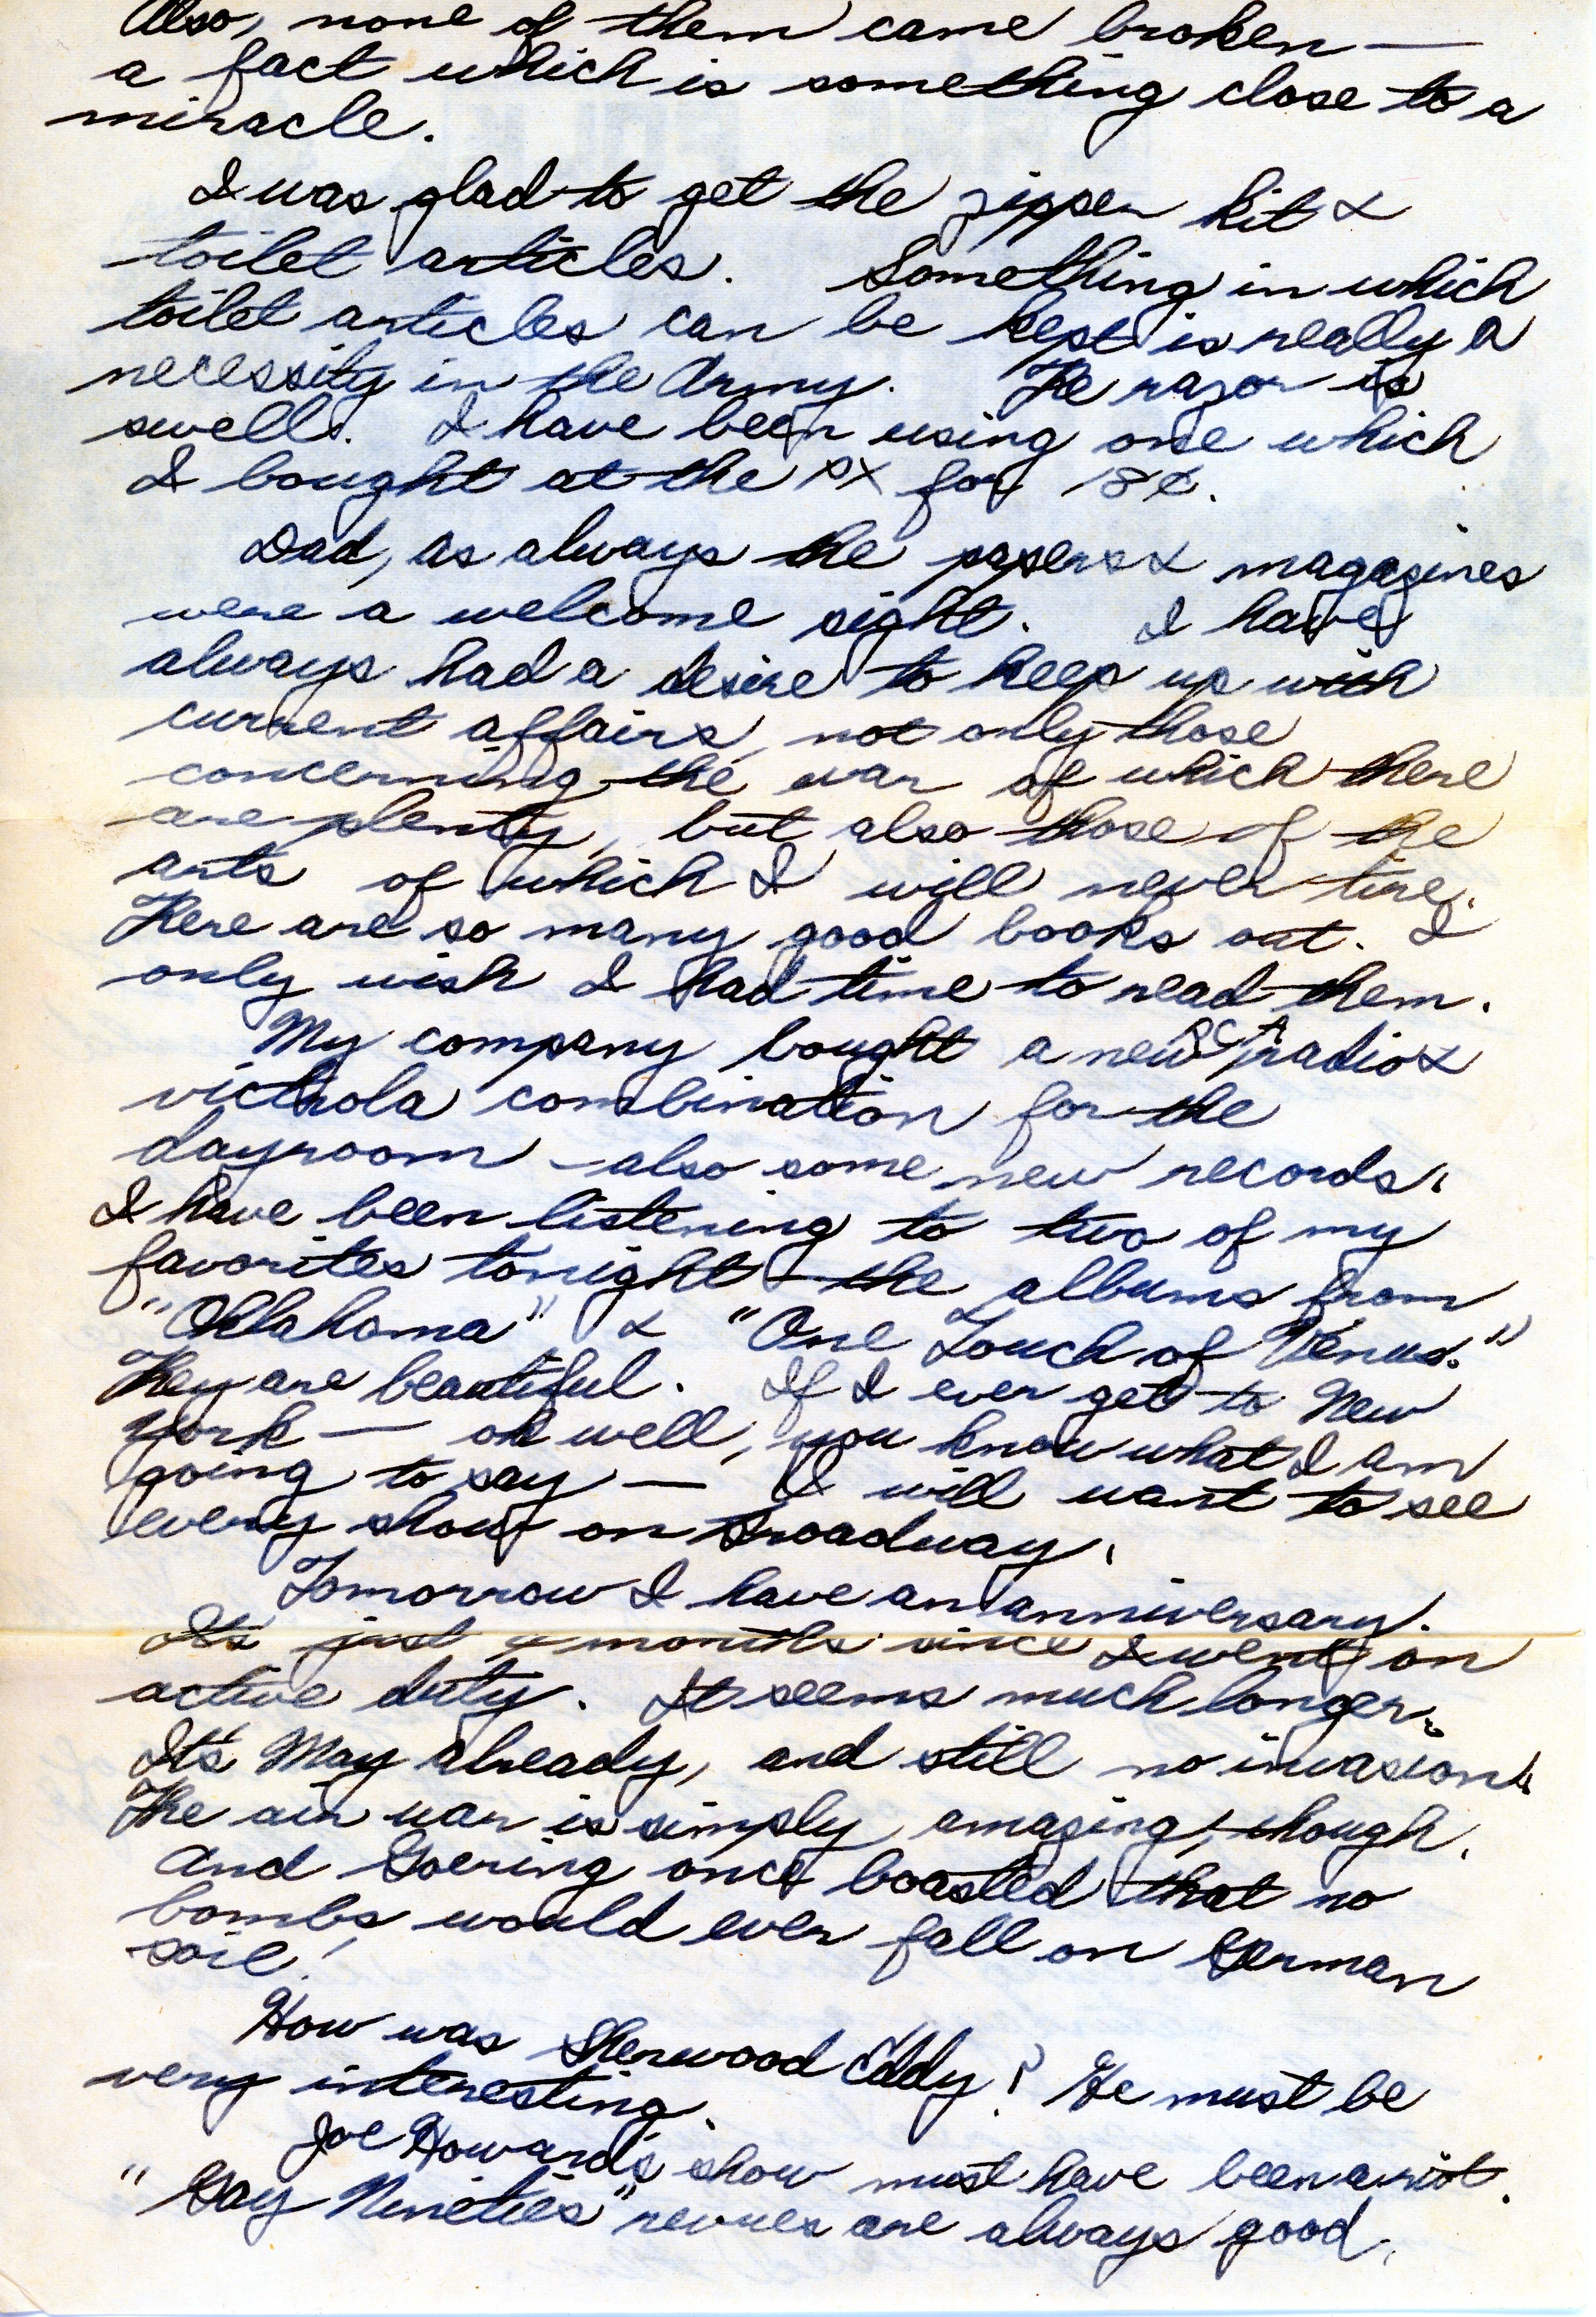 Also, none of them came broken —
a fact which is something close to a
miracle.
I was glad to get the zipper kit &
toilet articles. Something in which
toilet articles can be kept is really a
necessity in the Army. The razor is
swell. I have been using one which
I bought at the PX for 18¢.
Dad, as always the papers & magazines
were a welcome sight. I have
always had a desire to keep up with
current affairs, not only those
concerning the war of which there
are plenty, but also those of the
arts of which I will never tire.
There are so many good books out. I
only wish I had time to read them.
My company bought a new RCA radio &
victrola combination for the
dayroom – also some new records.
I have been listening to two of my
favorites tonight – the albums from
"Oklahoma" & "One Touch of Venus."
They are beautiful. If I ever get to New
York — oh well, you know what I am
going to say — I will want to see
every show on Broadway.
Tomorrow I have an anniversary.
It's just 4 months since I went on
active duty. It seems much longer.
It's May already, and still no invasion.
The air war is simply amazing, though.
And Goering once boasted that no
bombs would ever fall on German
soil!
How was Sherwood Eddy? He must be
very interesting.
Joe Howard's show must have been a riot.
"Gay Nineties" revues are always good.